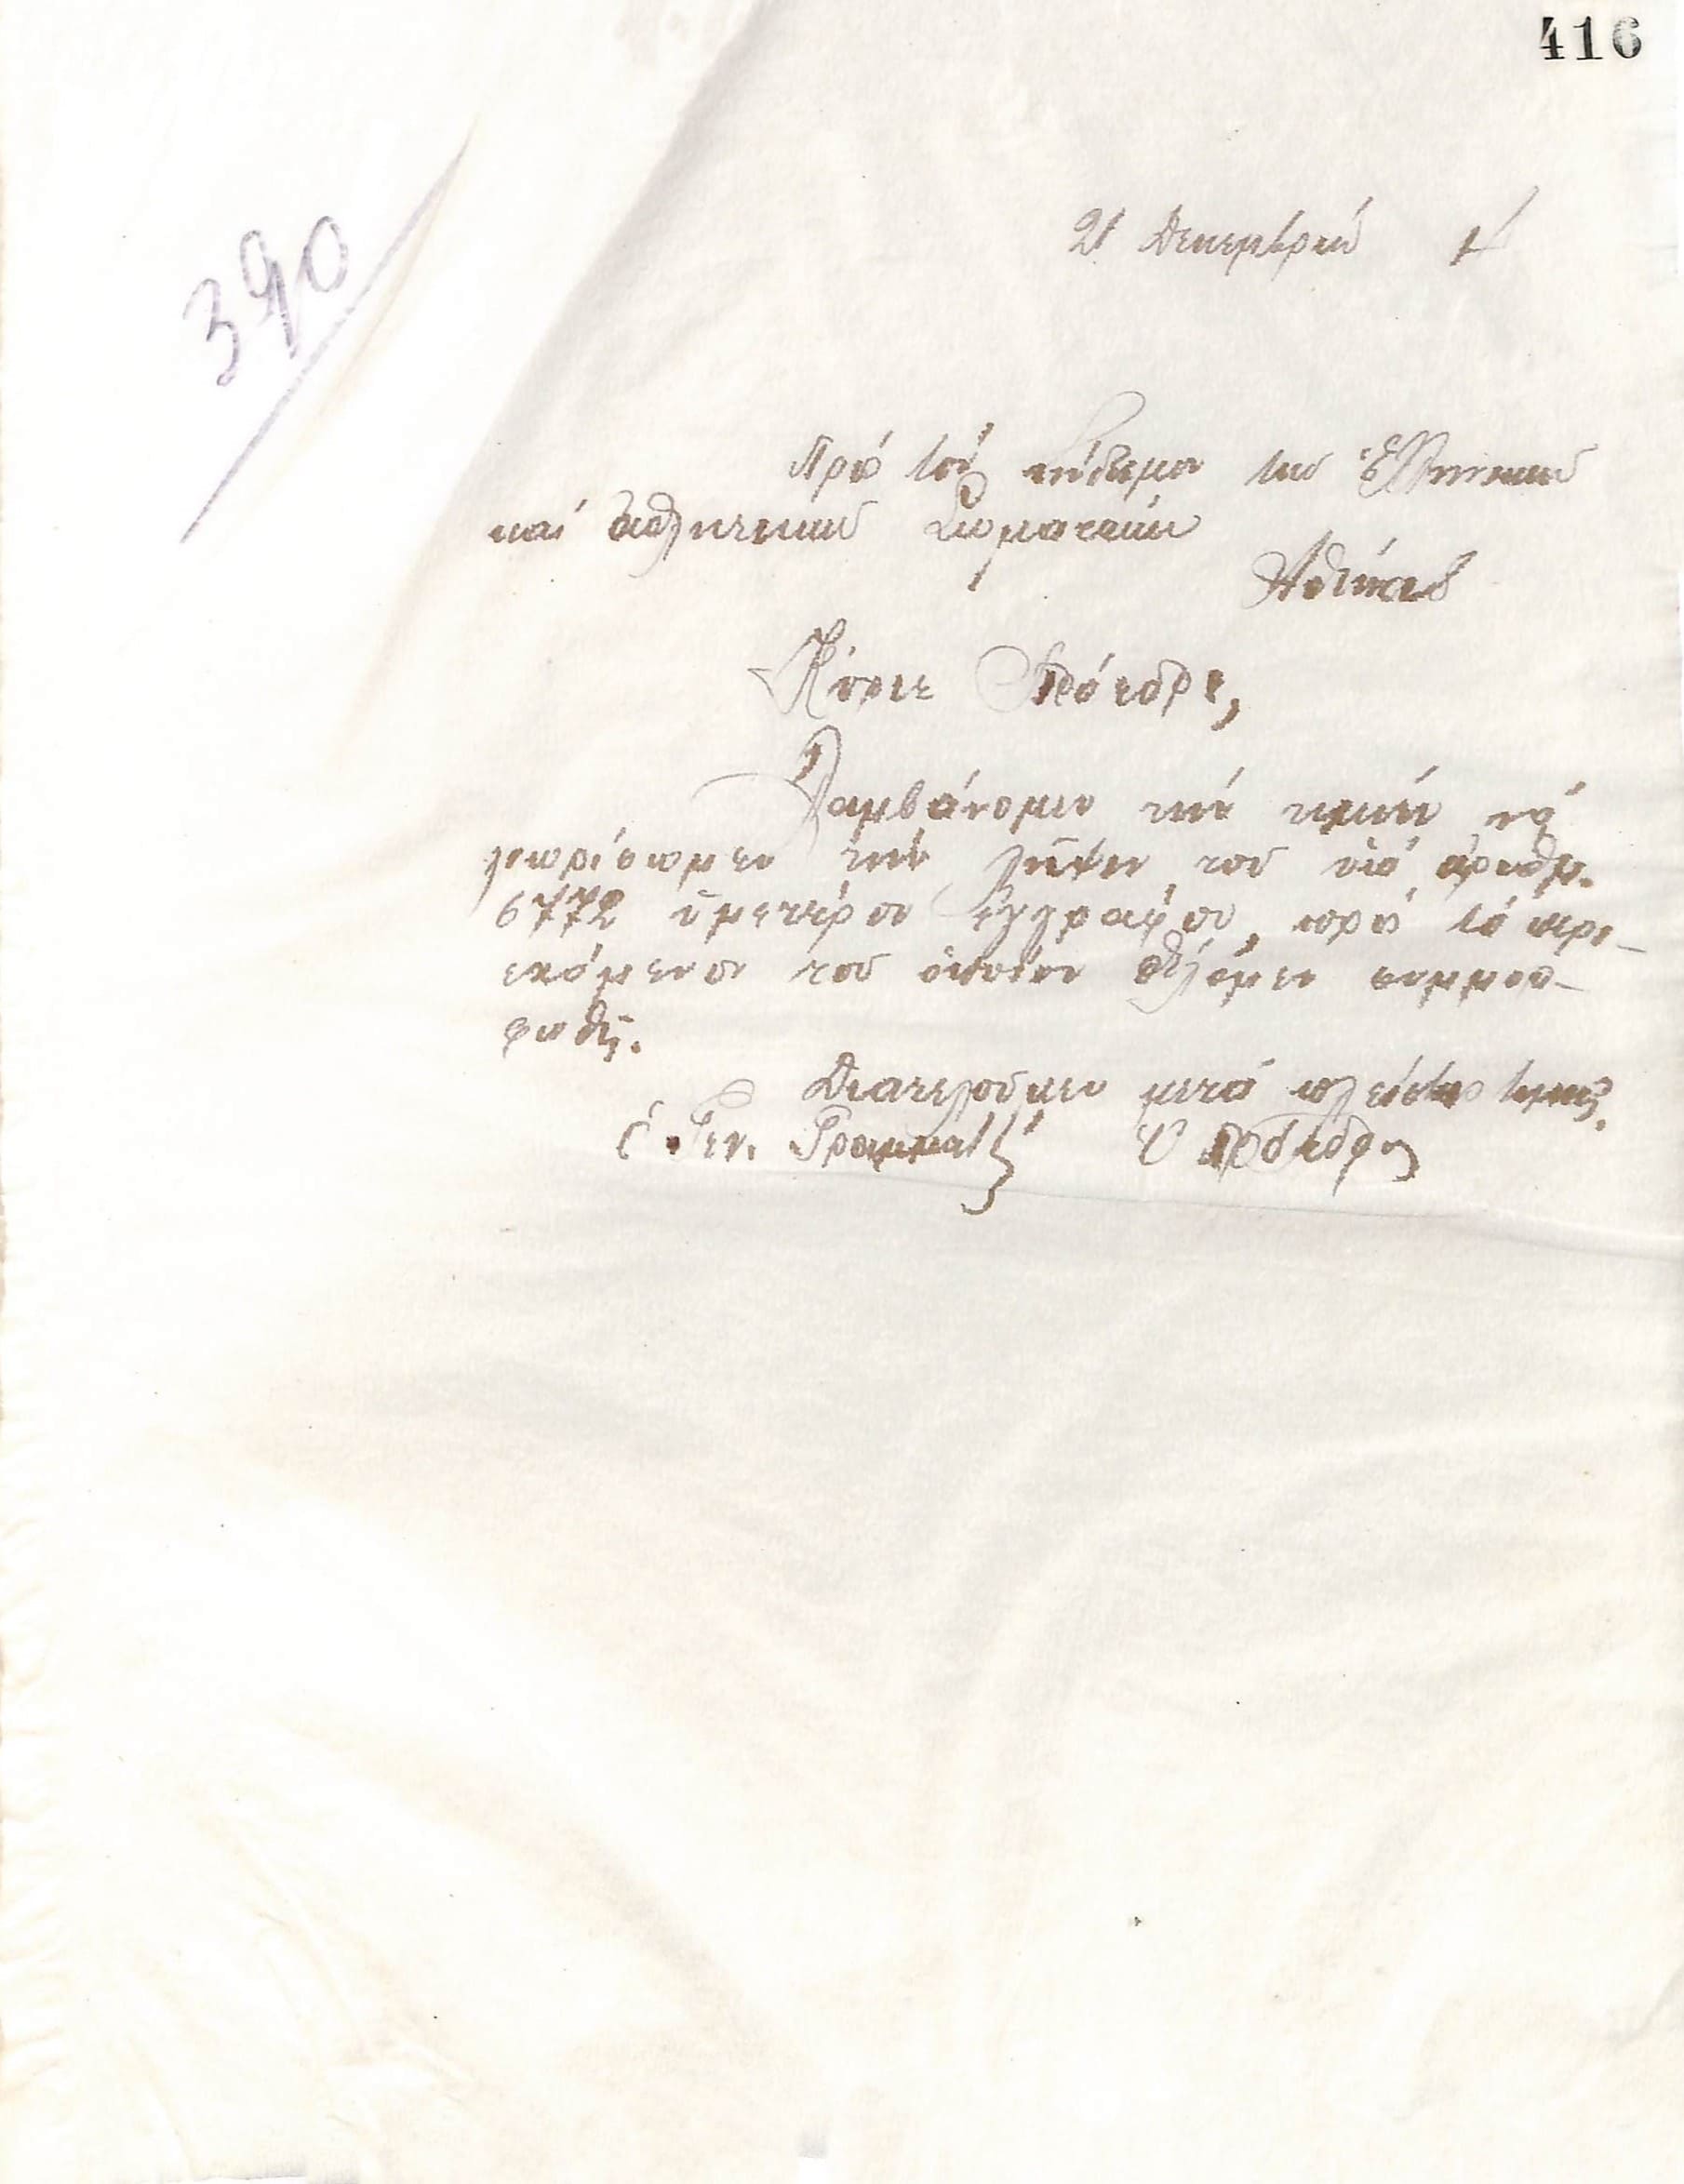 416
390
21 Δεκεμβρίου 14
Πρός τόν σύνδεσμον των Ἑλληνικών
καί ἀθλητικών Σωματείων
Ἀθήνας
Κύριε Πρόεδρε,
Λαμβάνομεν τήν τιμήν νά
γνωρίσωμεν τήν λήψιν του ὑπ' ἀριθμ.
6772 ὑμετέρου ἐγγράφου, πρός τό περι-
εχόμενον του ὁποίου θέλομεν συμμορ-
φωθῆ.
Διατελούμεν μετά πλείστης τιμής.
Ὁ Γεν. Γραμματεύς Ὁ Πρόεδρος